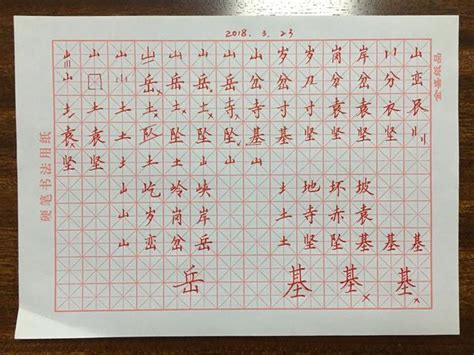 2018.3.23
山 山 山 山 山 山 山 岁 岁 岗 岸 山
山 口 小 岳 岳 岳 岳 岔 岔 岔 岔 分 峦
土 土 土 土 土 土 寺 寺 寸 寸 袁 袁 衣 艮
袁 袁 土 坠 坠 坠 基 基 坚 坚
坚 坚 土 土 土 土 山 山
山 屹 岭 峡 土 地 坏 坡
山 岁 岗 岸 土 寺 赤 袁
山 峦 岔 岳 土 坚 坠 基 基 基
岳 基 基 基
硬笔书法用纸